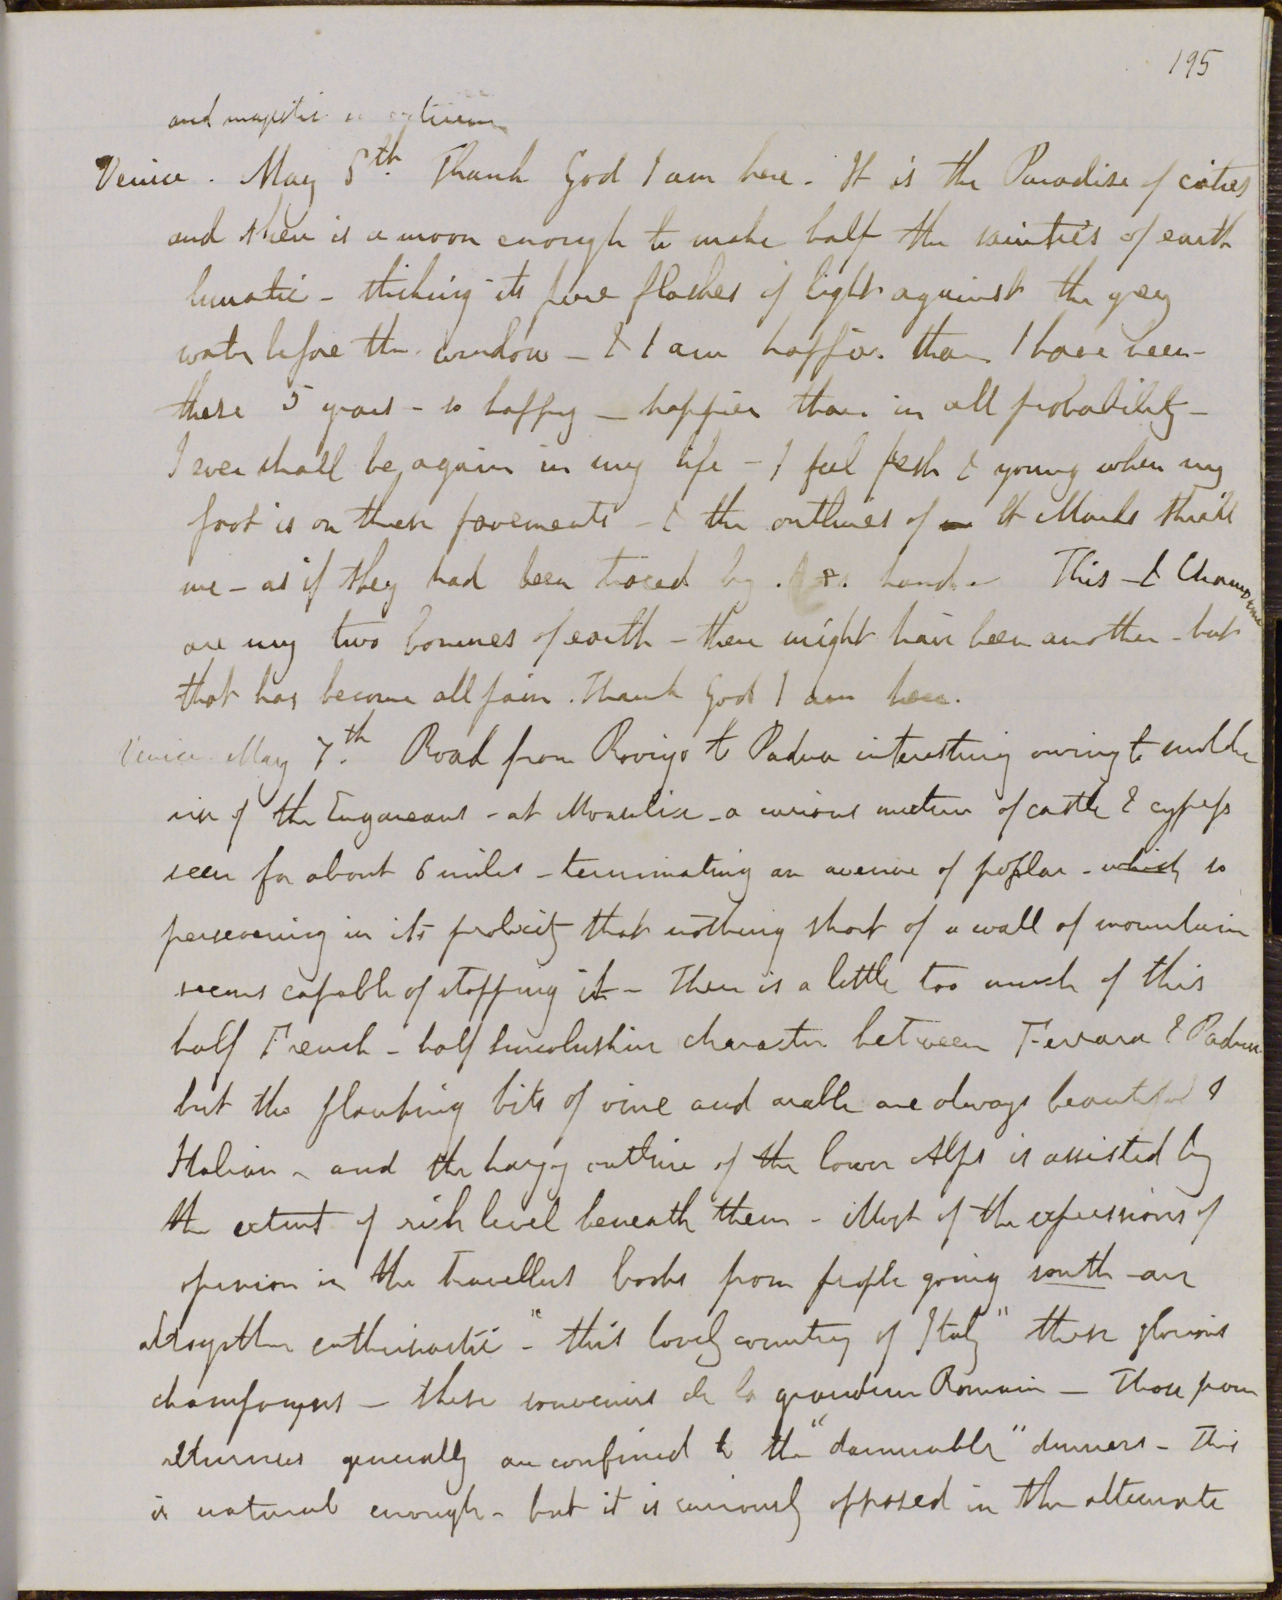 195
and majestic
Venice. May 6th. Thank God I am here. It is the Paradise of cities
and there is a moon enough to make half the sanities of earth
lunatic - striking its pure flashes of light against the grey
water before the window - & I am happier than I have been
these 5 years - so happy - happier than in all probability -
I ever shall be again in my life - I feel fresh & young when my
foot is on these pavements - & the outlines of St Marks thrill
me - as if they had been traced by hand - This - & Chamouni
are my two bournes of earth - there might have been another - but
that has become all pain. Thank God I am here.
Venice May 7th. Road from Rovigo to Padua interesting owing to sudden
rise of the Euganeans - at Monselice - a curious mixture of castle & cypress
seen for about 6 miles - terminating an avenue of poplar - which so
persevering in its prolixity that nothing short of a wall of mountain
seems capable of stopping it - There is a little too much of this
half French - half Lincolnshire character between Ferrara & Padua
but the flanking bits of vine and arable are always beautiful &
Italian - and the hazy outline of the lower Alps is assisted by
the extent of rich level beneath them - Most of the expressions of
opinion in the travellers books from people going south - are
altogether enthusiastic - "this lovely country of Italy" these glorious
- these souvenirs de la grandeur Romain - Those from
generally are confined to the "damnable" dinners - This
is natural enough - but it is curiously opposed in the alternate